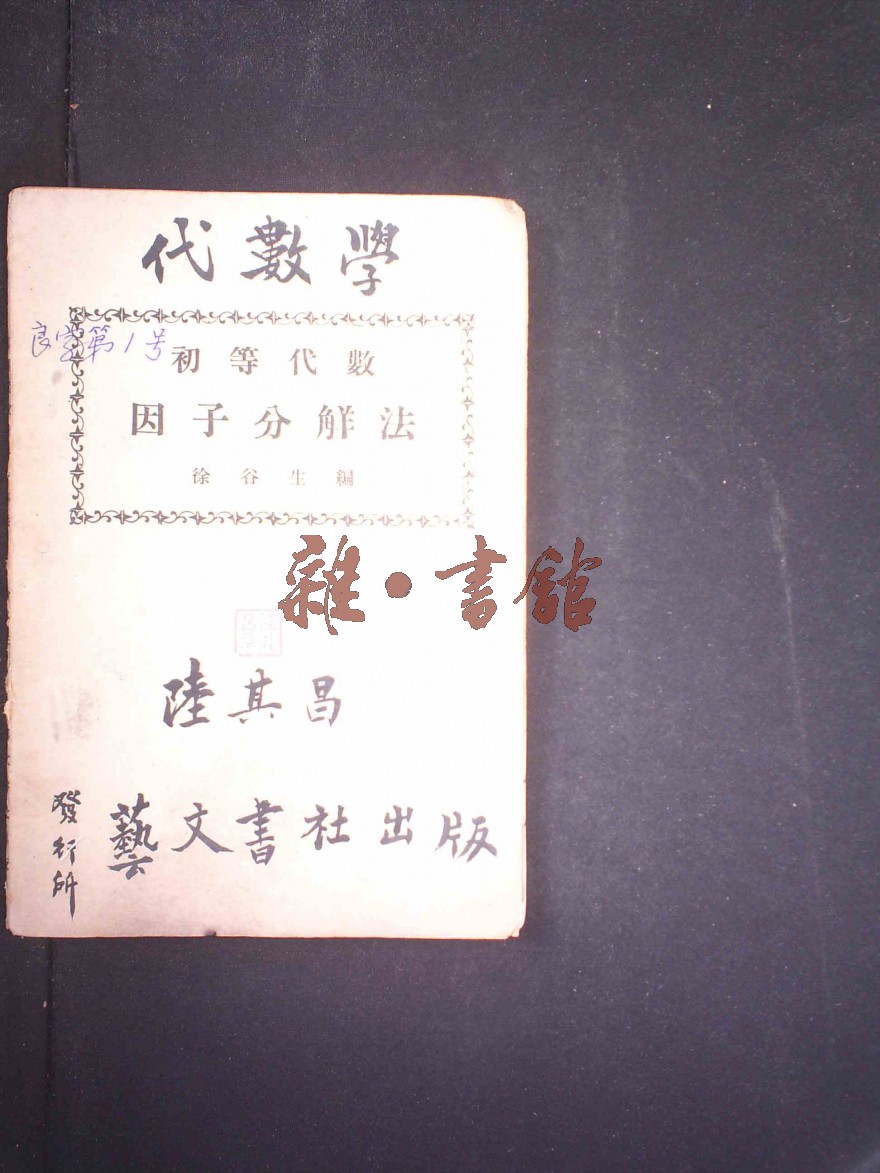 代數學
第1号
初等代數
因子分解法
徐谷生編
雜·書館
陸其昌
發行所
藝文書社出版